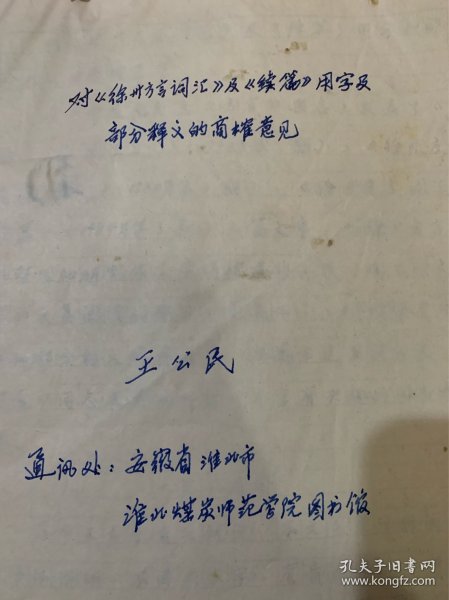 对《徐州方言词汇》及《续篇》用字及
部分释义的商榷意见
王公民
通讯处：安徽省淮北市
淮北煤炭师范学院图书馆
孔夫子旧书网
www.kongfz.com